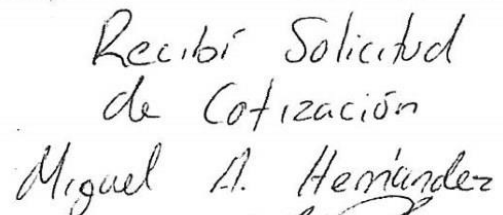 Recibí Solicitud
de Cotización
Miguel A. Hernández